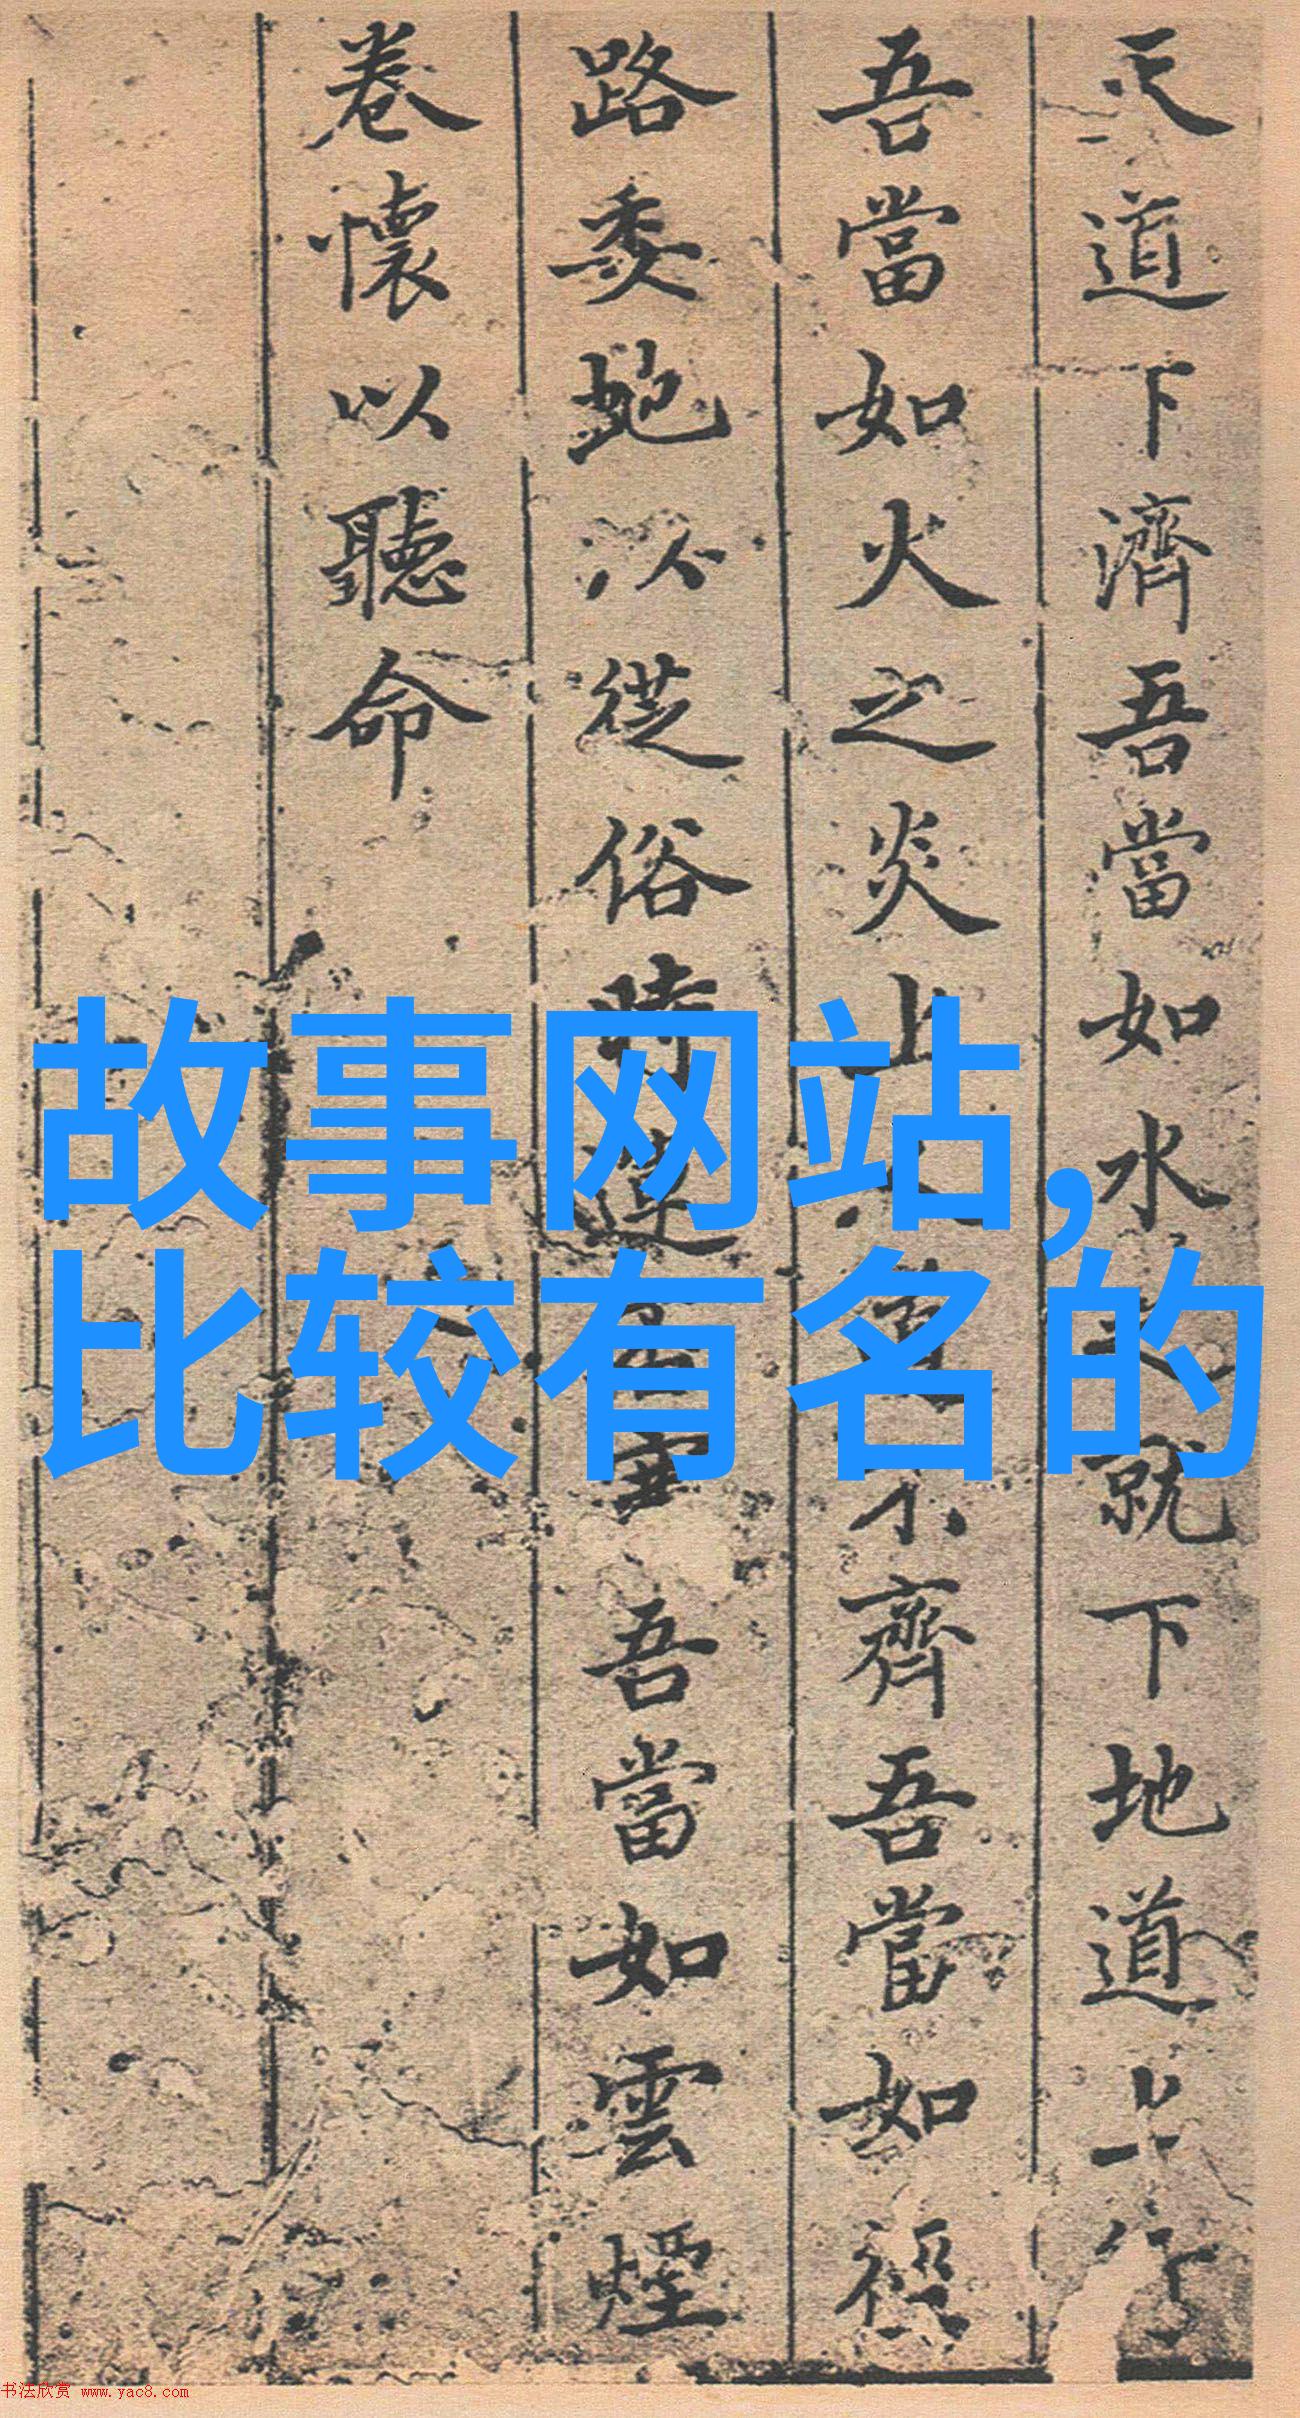 天道下濟吾當如水之就下地道上行
吾當如火之炎上不齊吾當如徑
路委蛇以從俗時運吾當如雲煙
卷懷以聽命
故事网站,
比较有名的
书法欣赏 www.yac8.com